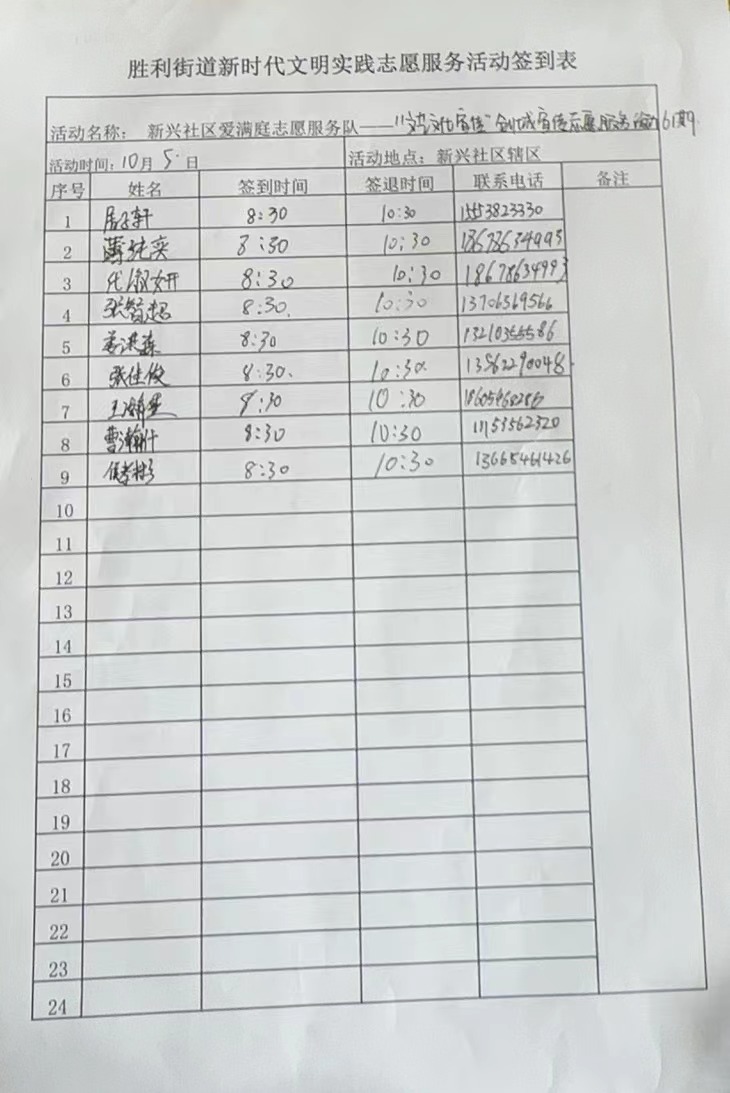 胜利街道新时代文明实践志愿服务活动签到表
活动名称： 新兴社区爱满庭志愿服务队——"文化宣传"创城宣传志愿服务活动61期
活动时间：10月5日 活动地点：新兴社区辖区
序号 姓名 签到时间 签退时间 联系电话 备注
1 8:30 10:30 1553823330
2 8:30 10:30 18678634993
3 代淑妍 8:30 10:30 18678634993
4 张智超 8:30 10:30 13706369566
5 姜洪森 8:30 10:30 13210355586
6 张佳俊 8:30 10:30
7 8:30 10:30
8 曹瀚什 8:30 10:30
9 8:30 10:30 13665461426
10
11
12
13
14
15
16
17
18
19
20
21
22
23
24